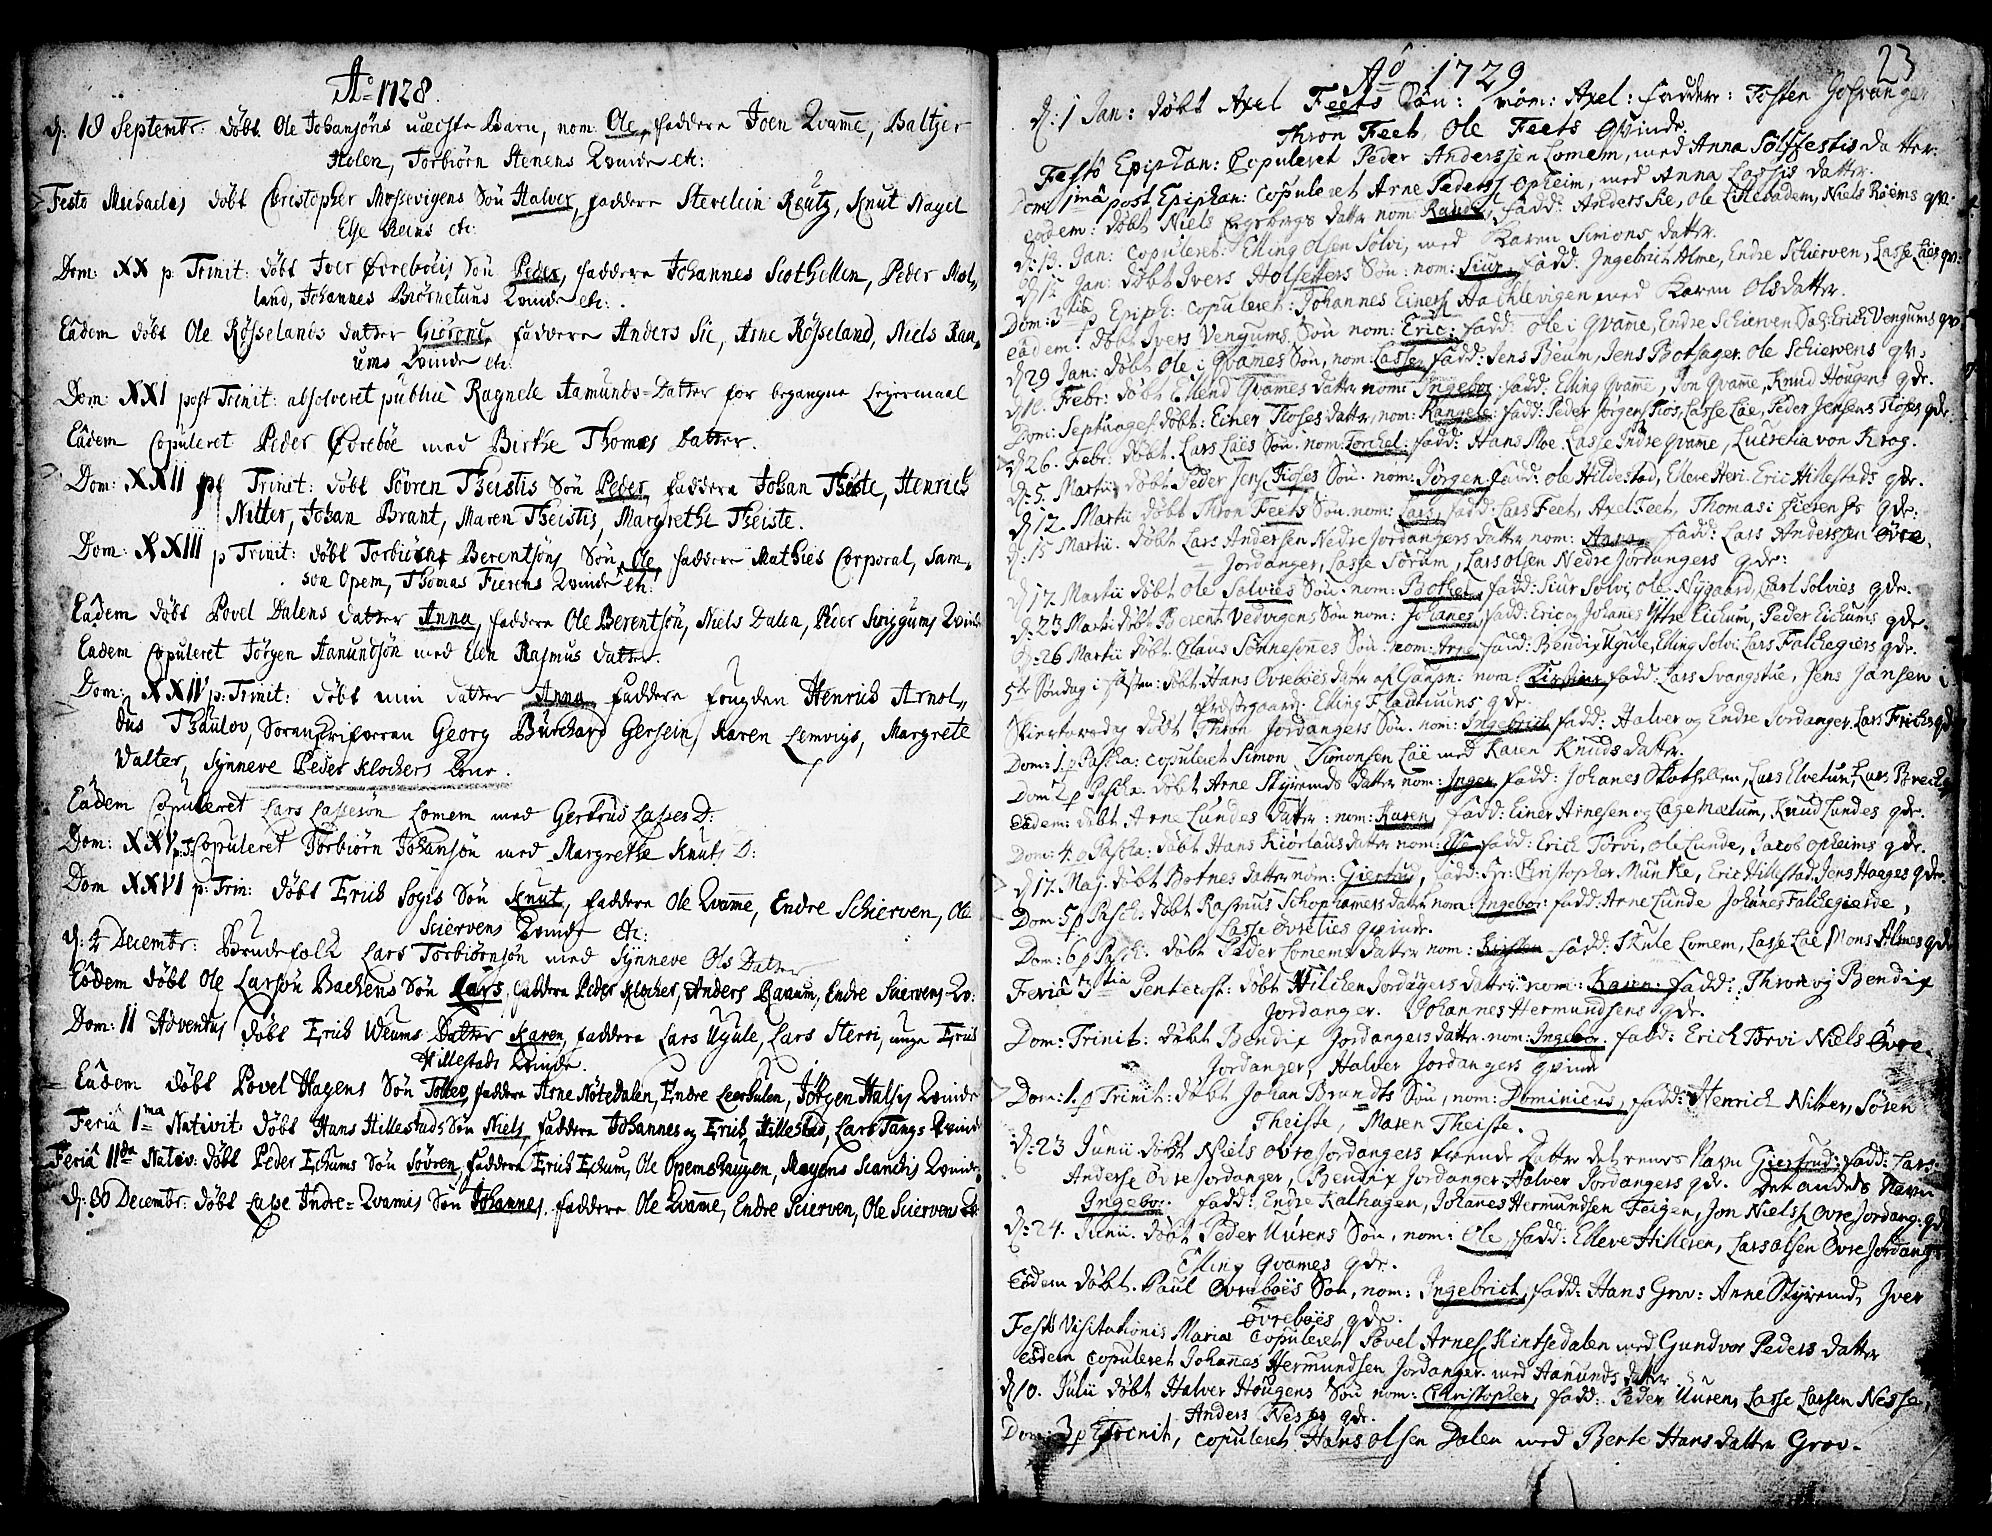 Aō 1728.
d: 18 Septembr: döbt Ole Johansöns uægte Barn, nom: Ole, faddere Joen Qvamme, Baltzer
Holen, Torbiörn Stenens Qvinde etc:
Festo Michaelis döbt Christopher Mossevigens Sön Halver, faddere Sterelein Reutz, Knut Nagel
Else Reins etc:
Dom: XX p. Trinit: döbt Iver Övreböeis Sön Peder, faddere Johannes Scothellen, Peder Mæl,
land, Johannes Biörnetuns Qvinde etc:
Eâdem döbt Ole Rösselands datter Giörond, faddere Anders Sie, Arne Rösseland, Niels Ran,
ums Qvinde etc:
Dom: XXI post Trinit: absolveret publicè Ragnele Aamunds-Datter for begangne Leyermaal
Eâdem Copuleret Peder Övreböe med Birthe Thomes datter.
Dom: XXII pt Trinit: döbt Sövren Theistis Sön Peder, faddere Johan Theiste, Henrich
Nitter, Johan Brant, Maren Theistis, Margrethe Theiste.
Dom: XXIII p Trinit: döbt Torbiörn Berentsöns Sön Ole, faddere Mathies Corporal, Sam,
son Opem, Thomas Fierens Qvinde etc:
Eâdem döbt Povel Dalens datter Anna, faddere Ole Berentsön, Niels Dalen, Peder Sviggums Qvinde
Eadem Copuleret Jörgen Aanundsön med Elen Rasmus datter.
Dom: XXIV p: Trinit: döbt min datter Anna faddere fougden Henrich Arnol,,
dus Thaulov, Sorenskriferen Georg Burchard Gersein, Karen Lemvigs, Margrete
Walter, Synneve Peder Klochers Kone.
Eâdem Copuleret Lars Lassesön Lomem med Gertrud Lasses D:
Dom: XXV p.T: Copuleret Torbiörn Johansön med Margrethe Knuts D:
Dom XXVI p: Trin: döbt Erich Sogis Sön Knut, faddere Ole Qvamme, Endre Schierven, Ole
Sciervens Qvinde etc:
d: 4 Decembr: Brudefolck Lars Torbiörnsön med Synneve Ols Datter
Eôdem döbt Ole Larsön Bachens Sön Lars, faddere Peder Klocher, Anders Ranum, Endre Sciervens Qv:
Dom: II Adventus döbt Erich Weums Datter Karen, faddere Lars Ugule, Lars Sterri, unge Erich
Hillestads Qvinde.
Eâdem döbt Povel Hagens Sön Tolles, faddere Arne Nötedalen, Endre Leerhulen, Jörgen Halsis Qvinde
Feriâ 1ma Nativit: döbt Hans Hillestads Sön Niels, faddere Johannes og Erich Hillestad, Lars Tangs Qvinde
Feriâ IIda Nativ: döbt Peder Echums Sön Sövren, faddere Erich Echum, Ole Opemshaugen, Mogens Scandis Qvinde
d: 30 Decembr: döbt Lasse Indre-Qvamis Sön Johannes, faddere Ole Qvamme, Endre Scierven, Ole Sciervens
23
Aō 1729
d: 1 Jan: döbt Axel Feets Sön: nom: Axel: faddere: Tosten
Thron Feet, Ole Feets Qvinde
Festo Epiphan: Copuleret Peder Anderssen Lomem, med Anna Sölffestis datter.
Dom: 1mâ post Epiphan: copuleret Arne Pederss. Opheim, med Anna Lassis datter.
eâdem: döbt Niels Engebergs datter nom: Randi, fadd: Anders Sie, Ole Littebadem, Niels Röems qv:
d: 13. Jan: copuleret: Elling Olsen Solvi, med Karen Simons datter.
d: 15 Jan: döbt Ivers Holseters Sön: nom: Siur, fadd: Ingebrict Alme, Endre Schierven, Lasse Läes qv:
Dom: 3tia p Epiph: copuleret: Johannes Einerss. Hachlevigen med Karen Olsdatter.
eâdem: döbt Ivers Vengums Sön nom: Eric: fadd: ole i Qvame, Endre Schierven Sal: Erich Vengums qv:
d 29 Jan: döbt Ole i Qvames Sön, nom: Lasse, fadd: Jens Bëum, Jens Botsager. Ole Schiervens qv:
d 10. Febr: döbt Ellend Qvames datter nom: Ingebor, fadd: Elling Qvame, Jon Qvame, Knud Hougens qdr.
Dom: Septuages döbt: Einer Tioses datter, nom: Rangele: fadd: Peder Jörgens Tios, Lasse Läe, Peder Jensens Tioses qdr.
d 26. Febr: döbt. Lars Läes Sön. nom: Torchel: fadd: Hans Moe. Lasse Indre Qvame, Lucretia von Krog.
d. 5. Martii döbt Peder Jens Tioses Sön. nom: Jörgen, fadd: Ole Hildestad, Elleve Heri. Eric Hillestads qdr.
d 12. Martii döbt Thron Feets Sön. nom: Lars, fadd: Lars Feet, Axel Feet, Thomas i Fierens qdr.
d: 15 Martii. döbt Lars Andersen Nedre Jordangers datter nom: fadd: Lars Anderssen Övre,
Jordanger, Lasse Sörum, Lars Olsen Nedre Jordangers qdr:
d 17. Martii döbt Ole Solvies Sön. nom: Botolv, fadd: Siur Solvi, Ole Nygaard, Carl Solvies qdr.
d: 23 Martii döbt Berent Vedvigens Sön nom: Johanes, fadd: Eric og Johanes Yttre Eickum, Peder Eickums qdr.
d: 26 Martii döbt Claus Sonnesönes Sön nom: Arne fadd: Bendix Ugule, Elling Solvi, Lars Falchegiers qdr.
5te Söndag i fasten: döbt Hans Övreböes datter af Gaupn: nom: Kirstin, fadd: Lars Svangstie, Jens Jansen i
Prestgaard. Elling Flaatuuns qdr.
Skiertorsdag döbt Thron Jordangers Sön. nom: Ingebrich fadd: Halver og Endre Jordanger, Lars Friches qdr.
Dom: 1. p Pascha: copuleret Simon Simonsen Läe med Karen Knudsdatter.
Dom: 2 p Pascha. döbt Arne Skyrends datter nom: Inger fadd: Johanes Skothellem, Lars Elvetun, Lars Brechs
eâdem: döbt Arne Lundes datter: nom: Karen, fadd: Einer Arnesen og Lage Mælum, Knud Lundes qdr.
Dom: 4. p Pascha: döbt Hans Kiörlaus datter nom: fadd: Erich Törvi, Ole Lunde, Jacob Opheims qdr.
d 17. Maj: döbt Botnes datter nom: Giertrud, fadd: Hr: Christopher Munthe, Eric Hillestad, Jens Haeges qdr.
Dom: 5 p Pasch: döbt Rasmus Schophamers datter nom: Ingebor: fadd: Arne Lunde Johanes Falchegierde,
Lasse Övreties qvinde.
Dom: 6 p Pasch: döbt Peder Lomems datter nom: Kirsten fadd: Skule Lomem, Lasse Läe Mons Almes qdr
Feriâ 3tia Pentecost: döbt Hilchen Jordangers datter: nom: Karen. fadd: Thron og Bendix
Jordanger. Johannes Hermundsens qdr.
Dom: Trinit: döbt Bendix Jordangers datter nom: Ingebor. fadd: Erich Törvi Niels Övre-
Jordanger, Halver Jordangers qvind
Dom: 1. p Trinit: döbt Johan Brandts Sön, nom: Dominicus, fadd: Henrich Nitter, Sören
Theiste, Maren Theiste.
d: 23 Junii döbt Niels Övre Jordangers tvende datter det eenes Navn Giertrud: fadd: Lars
Anderss Övre Jordanger, Bendix Jordanger Halver Jordangers qdr. det andets Navn
Ingebor. fadd: Endre Kalhagen, Johanes Hermundsen Feigen, Jon Nielss Övre Jordang: qdr
d: 24. Junii. döbt Peder Uurens Sön, nom: Ole, fadd: Elleve Hilleren, Lars Olsen Övre Jordang:
Elling Qvames qdr.
eôdem döbt. Paul Övreböes Sön, nom: Ingebrich, fadd: Hans Grov: Anne Skyrend, Jver
övreböes qdr.
Festo Visitationis Mariæ Copuleret Povel Arness Kintsedalen med Gundvor Peders datter
eôdem copuleret Johannes Hermundsen Jordanger med Aanunds datter
d 10. Julii döbt Halver Hougens Sön nom: Christopher, fadd: Peder Uuren, Lasse Larsen Nesse,
Anders Nesses qdr.
Dom: 3 p Trinit, copuleret Hans Olsen Dalen med Berte Hansdatter Grov.